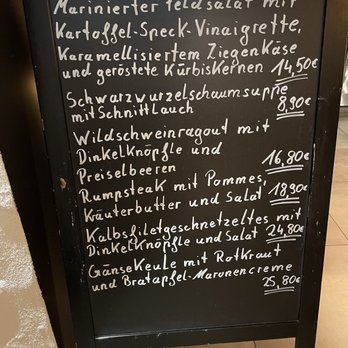 Marinierter Feldsalat mit
Kartoffel-Speck-Vinaigrette,
Karamellisiertem Ziegenkäse
und geröstete Kürbiskernen 14,50€
Schwarzwurzelschaumsuppe
mit Schnittlauch 8,90€
Wildschweinragout mit
Dinkelknöpfle und
Preiselbeeren 16,80€
Rumpsteak mit Pommes,
Kräuterbutter und Salat 18,90€
Kalbsfiletgeschnetzeltes mit
Dinkelknöpfle und Salat 24,80€
Gänsekeule mit Rotkraut
und Bratapfel-Maronencreme
25,80€